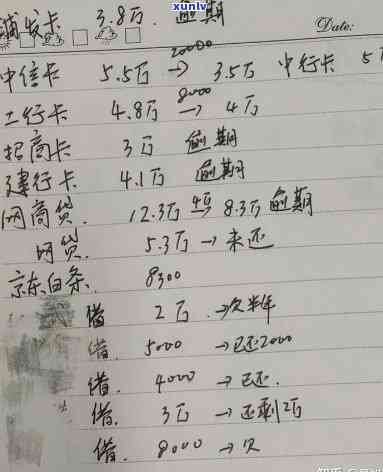 xunlv
浦发卡 3.8万. 逾期
Date:
20000
中信卡 5.5万 → 3.5万 中行卡 5
8000
工行卡 4.8万 → 4万
招商卡 3万 逾期
建行卡 4.1万 逾期
网商贷. 12.3万 8.3万 逾期
网贷. 5.3万 → 未还
京东白条. 8300
借 2万 → 欠半年
借. 5000 → 已还2000
借. 4000 → 已还.
借. 3万 → 还剩2万
借. 8000 → 欠
知乎